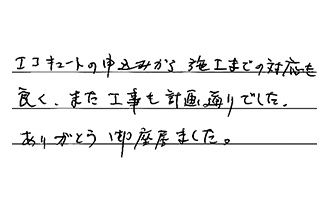 エコキュートの申込みから施工までの対応も
良く、また工事も計画通りでした。
ありがとう御座居ました。